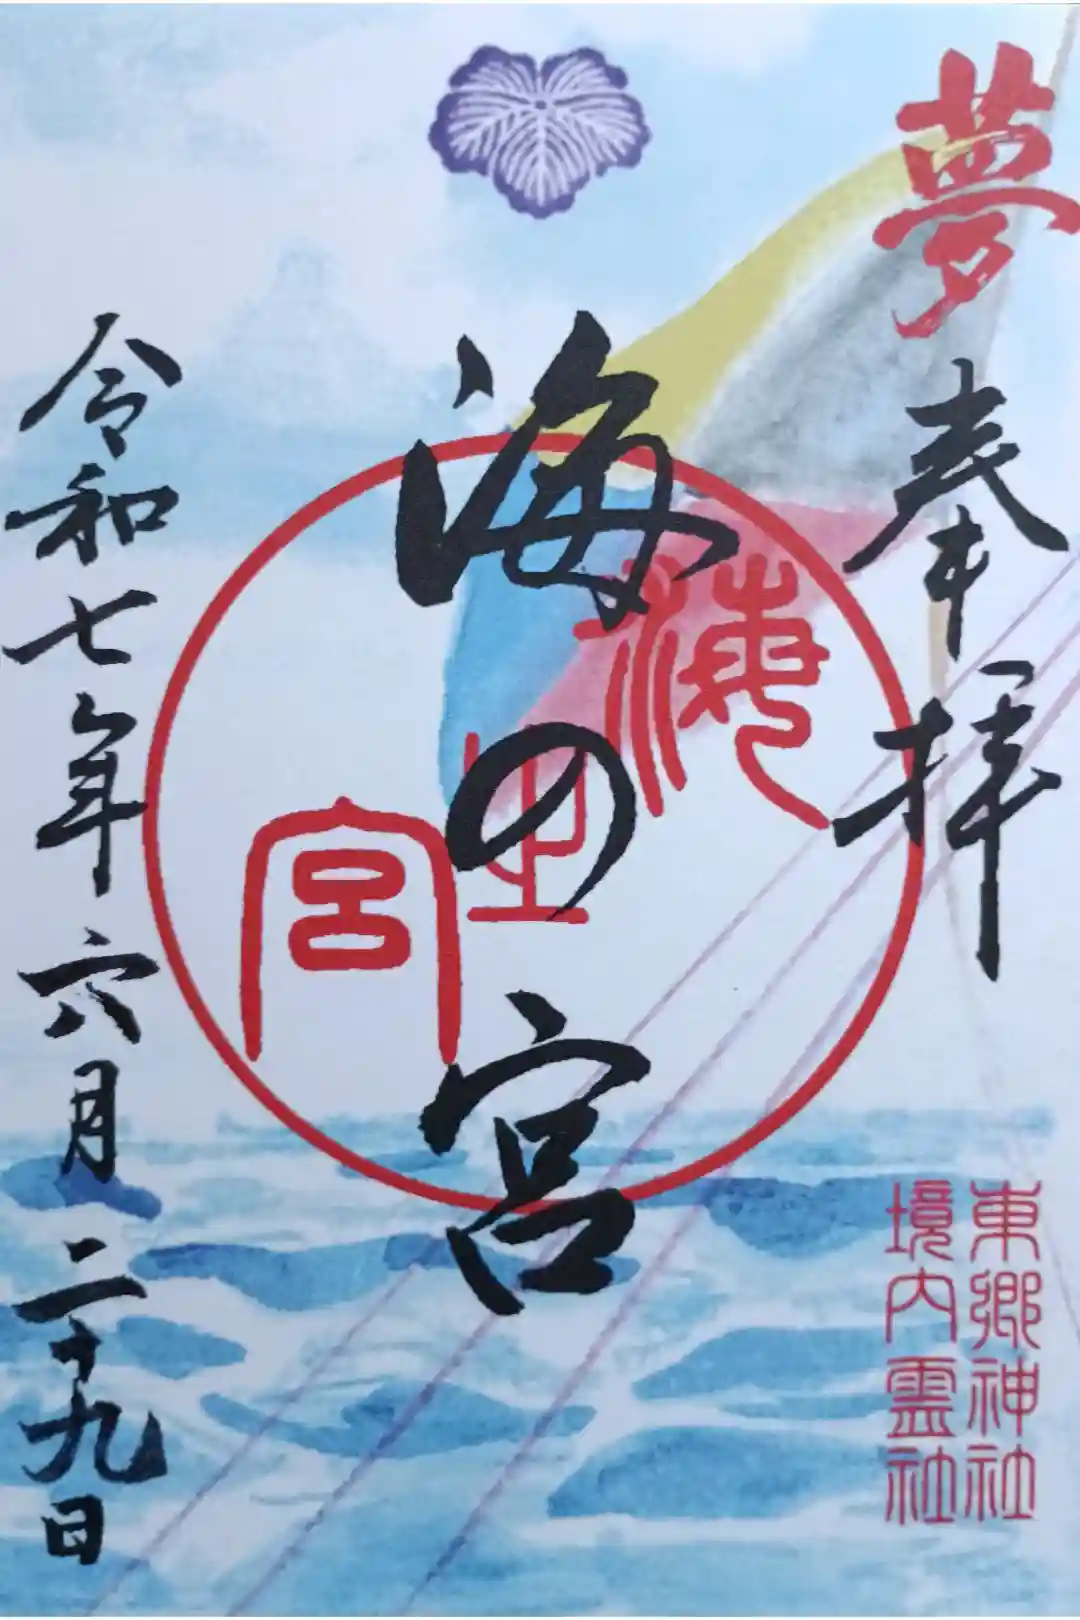 夢
奉拝
海の宮
海之宮
東郷神社
境内霊社
令和七年六月二十九日